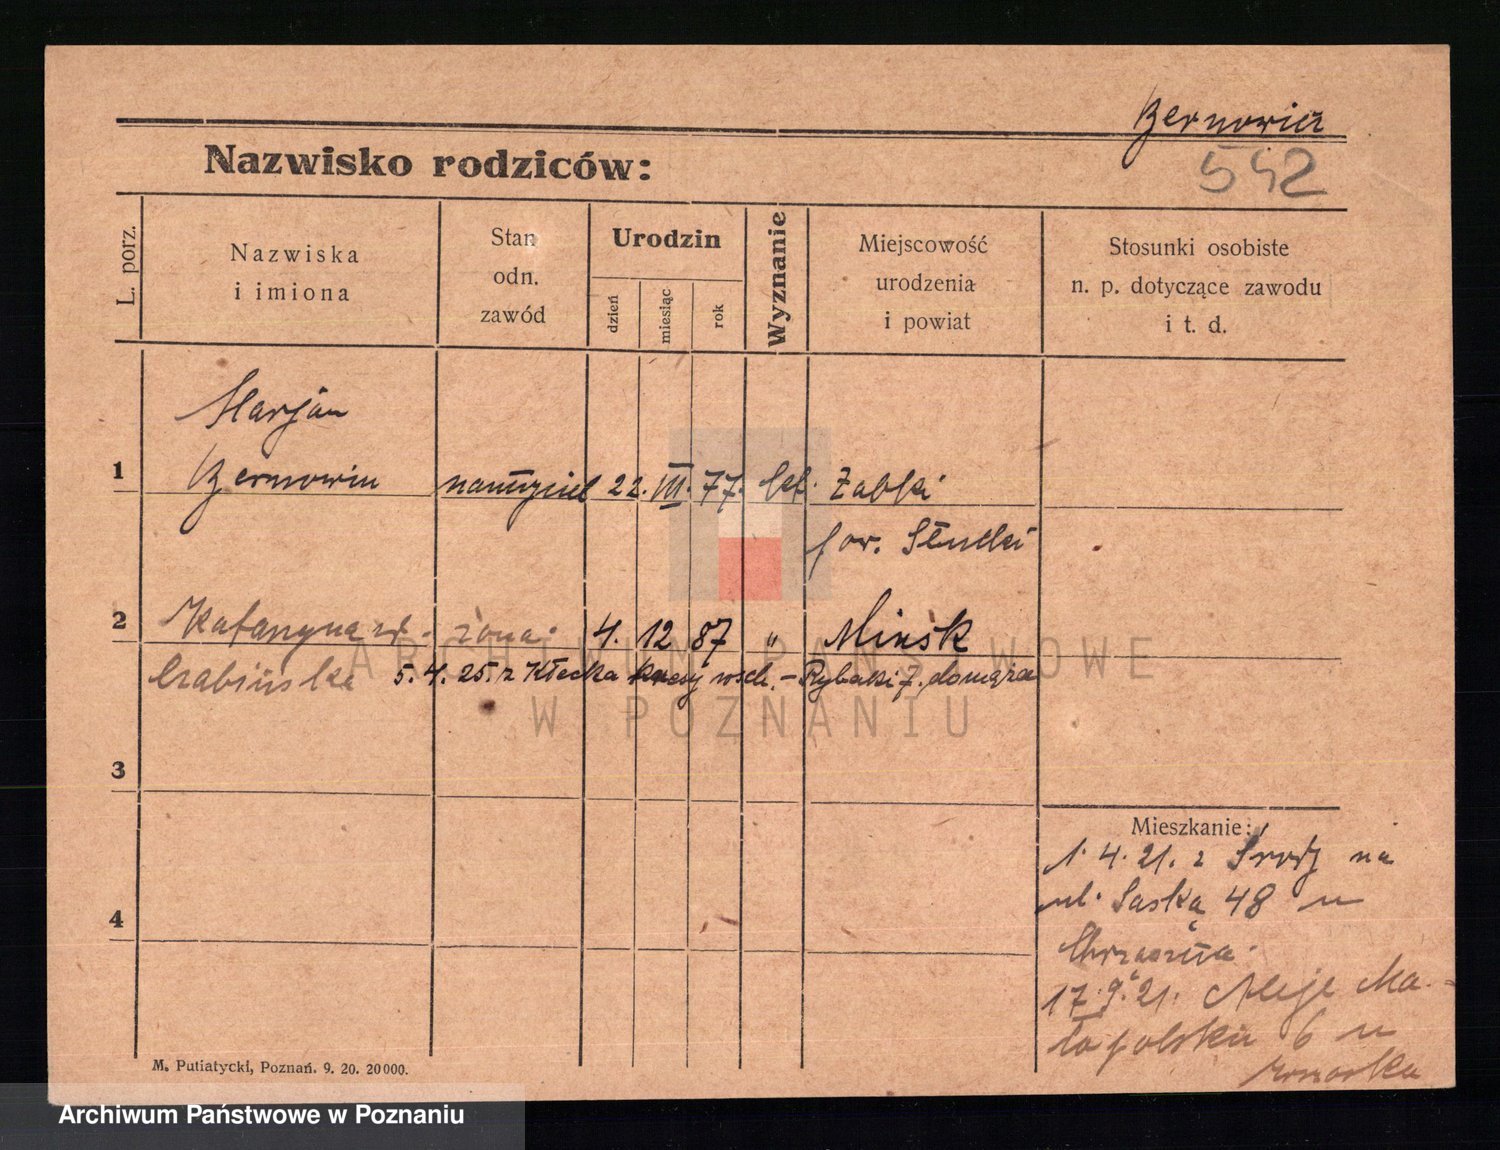 Bernowicz
542
Nazwisko rodziców:
L. porz.
Nazwiska
i imiona
Stan
odn.
zawód
Urodzin
dzień
miesiąc
rok
Wyznanie
Miejscowość
urodzenia
i powiat
Stosunki osobiste
n. p. dotyczące zawodu
i t. d.
Marjan
1
nauczyciel 22. III. 77. kat.
pow. Słucki
2
Katarzyna żona 4. 12 87 " Mińsk
5. 4. 25. z Kłecka kresy wsch. – Rybaki 7.
3
4
Mieszkanie:
1. 4. 21. z Środy na
ul. Saska 48 u
17. 9. 21. Aleje Ma-
łopolskie 6 u
M. Putiatycki, Poznań. 9. 20. 20000.
ARCHIWUM PAŃSTWOWE
W POZNANIU
Archiwum Państwowe w Poznaniu